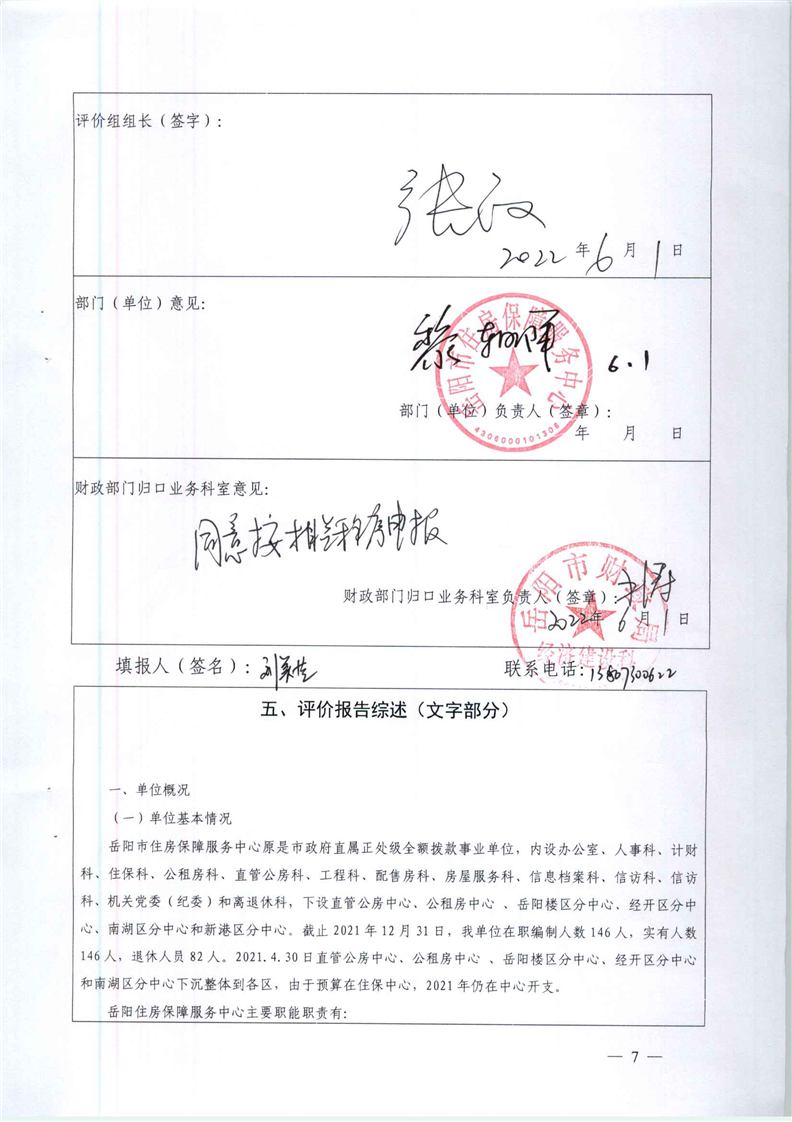 评价组组长（签字）：
2022年6月1日
部门（单位）意见：
岳阳市住房保障服务中心
6.1
部门（单位）负责人（签章）：
4306000101306
年 月 日
财政部门归口业务科室意见：
同意按相关程序申报
岳阳市财政局
财政部门归口业务科室负责人（签章）：
2022年6月1日
经济建设科
填报人（签名）：
联系电话：
五、评价报告综述（文字部分）
一、单位概况
（一）单位基本情况
岳阳市住房保障服务中心原是市政府直属正处级全额拨款事业单位，内设办公室、人事科、计财
科、住保科、公租房科、直管公房科、工程科、配售房科、房屋服务科、信息档案科、信访科、信访
科、机关党委（纪委）和离退休科，下设直管公房中心、公租房中心 、岳阳楼区分中心、经开区分中
心、南湖区分中心和新港区分中心。截止 2021 年 12 月 31 日，我单位在职编制人数 146 人，实有人数
146 人，退休人员 82 人。2021.4.30 日直管公房中心、公租房中心 、岳阳楼区分中心、经开区分中心
和南湖区分中心下沉整体到各区，由于预算在住保中心，2021 年仍在中心开支。
岳阳住房保障服务中心主要职能职责有：
— 7 —